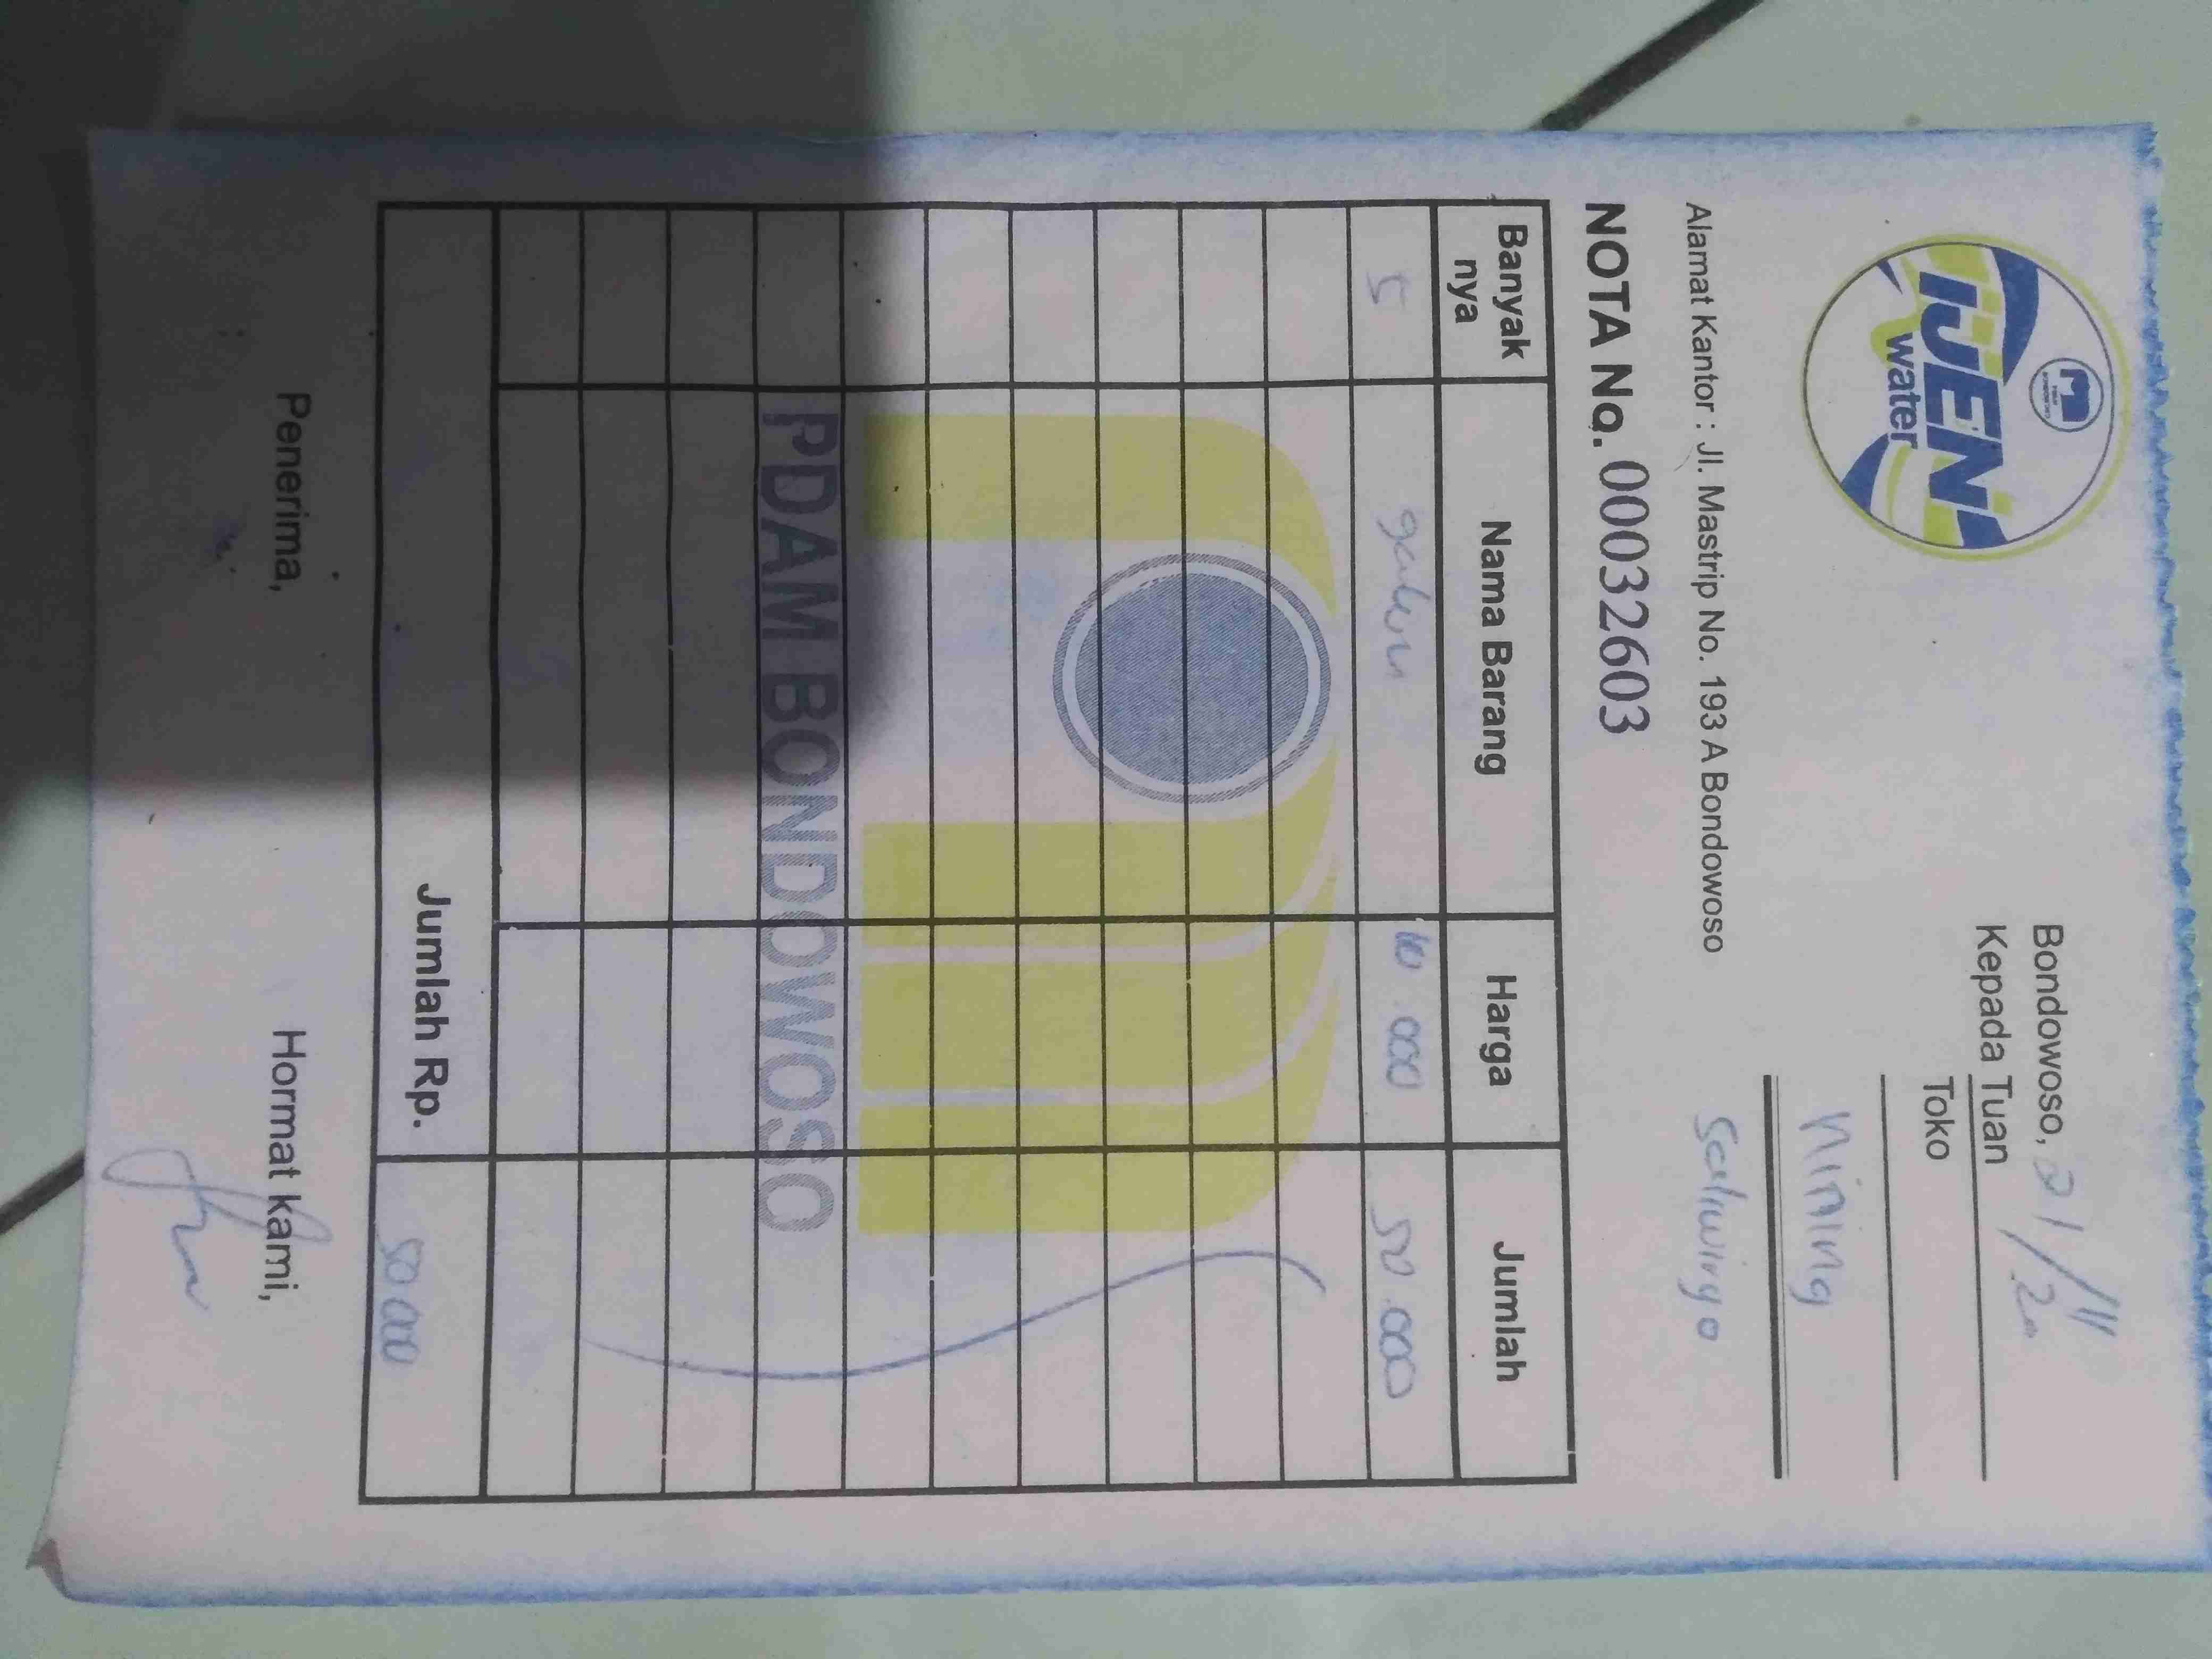 IJEN
water
Bondowoso, 21/11/20
Kepada Tuan
Toko
Nining
Saliwiryo
Alamat Kantor : Jl. Mastrip No. 193 A Bondowoso
NOTA No. 00032603
Banyak nya Nama Barang Harga Jumlah
5 galon 10.000 50.000
PDAM BONDOWOSO
Jumlah Rp. 50.000
Penerima, Hormat kami,